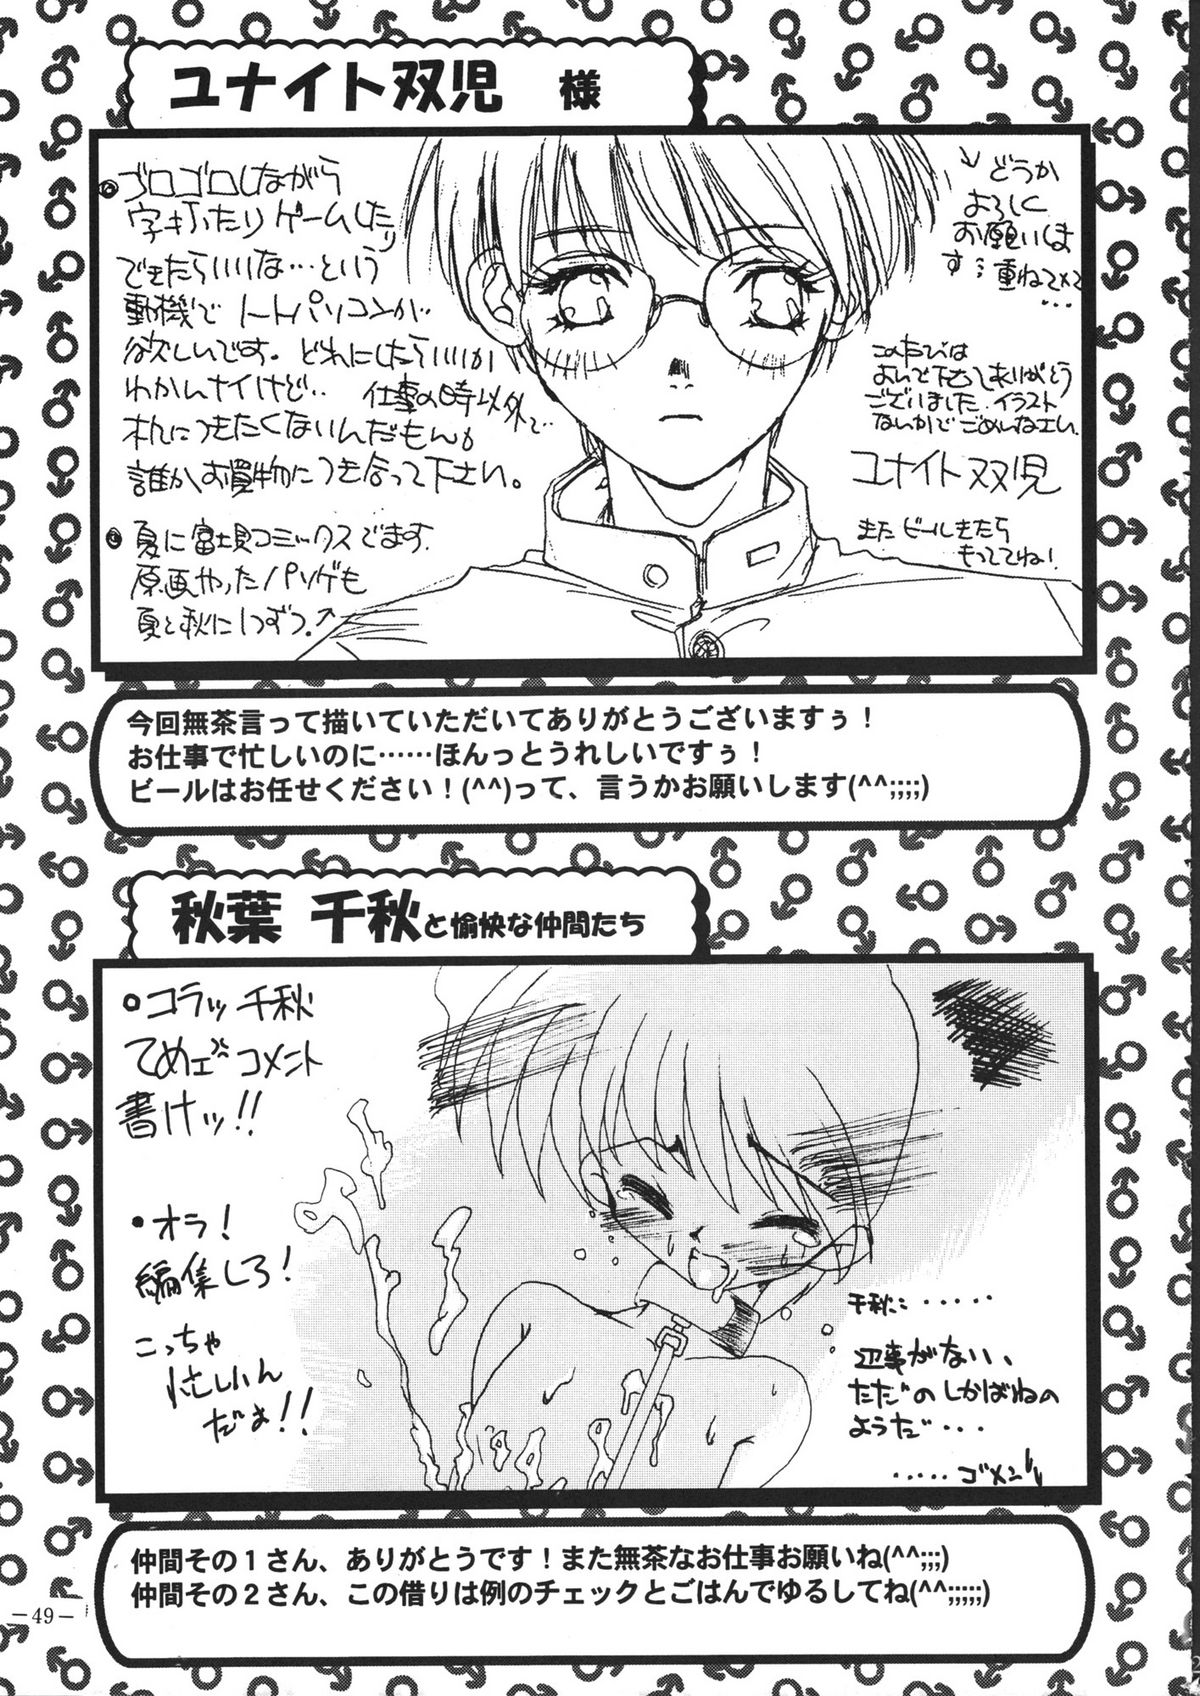 ユナイト双児 様
ゴロゴロしながら
字打ったりゲームしたり
できたらいいな…という
動機でノートパソコンが
欲しいです。どれにしたらいいか
わかんナイけど… 仕事の時以外で…
机につきたくないんだもん。
誰かお買物につき合って下さい。
夏に富士見コミックスでます。
原画やったパソゲも
夏と秋に1つずつ。↗
↘どうか
よろしく
お願いしま
す…重ね
このたびは
よんで下さってありがとう
ございました。イラスト
ないかで ごめんなさい。
ユナイト双児
また ビールきたら
もっててね!
今回無茶言って描いていただいてありがとうございますぅ!
お仕事で忙しいのに……ほんっとうれしいですぅ!
ビールはお任せください!(^^)って、言うかお願いします(^^;;;;)
秋葉 千秋と愉快な仲間たち
・コラッ千秋
てめェ コメント
書けッ!!
・オラ!
編集しろ!
こっちゃ
忙しいん
だよ!!
千秋に・・・・・
返事がない、
ただの しかばねの
ようだ・・・
・・・・・ゴメン
仲間その1さん、ありがとうです!また無茶なお仕事お願いね(^^;;;)
仲間その2さん、この借りは例のチェックとごはんでゆるしてね(^^;;;;;)
－49－